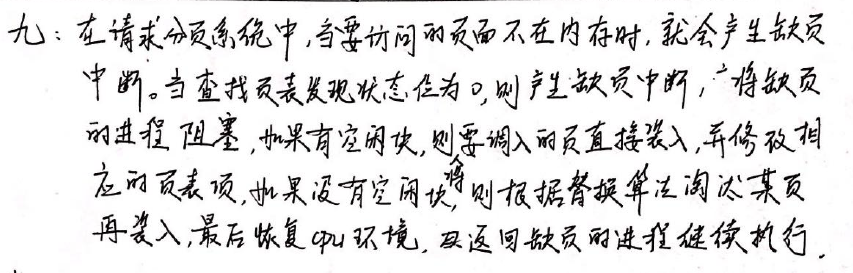 九：在请求分页系统中，当要访问的页面不在内存时，就会产生缺页
中断。当查找页表发现状态位为0，则产生缺页中断，将缺页
的进程阻塞，如果有空闲块，则将要调入的页直接装入，并修改相
应的页表项，如果没有空闲块，则根据替换算法淘汰某页
再装入，最后恢复cpu环境，返回缺页的进程继续执行.